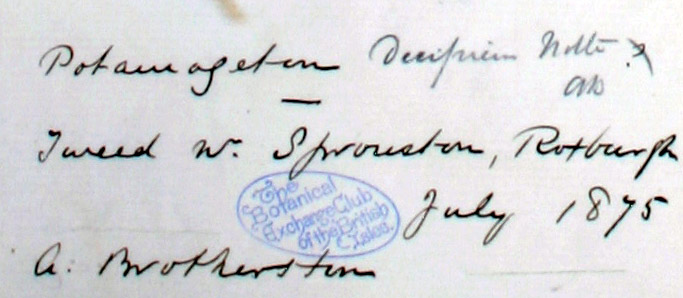 Potamogeton Decipiens Nolte ?
AB
Tweed nr. Sprouston, Roxburgh
July 1875
The
Botanical
Exchange Club
of the British
Isles.
A. Brotherston